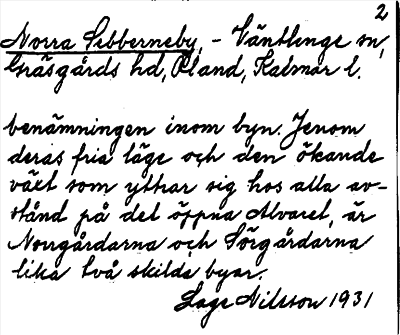 2
Norra Sebberneby, - Väntlinge sn,
Gräsgårds hd, Öland, Kalmar l.
benämningen inom byn. Jenom
deras fria läge och den ökande
växt som yttrar sig hos alla av-
stånd på det öppna Alvaret, är
Norrgårdarna och Sörgårdarna
lika två skilda byar.
Lage Nilsson 1931